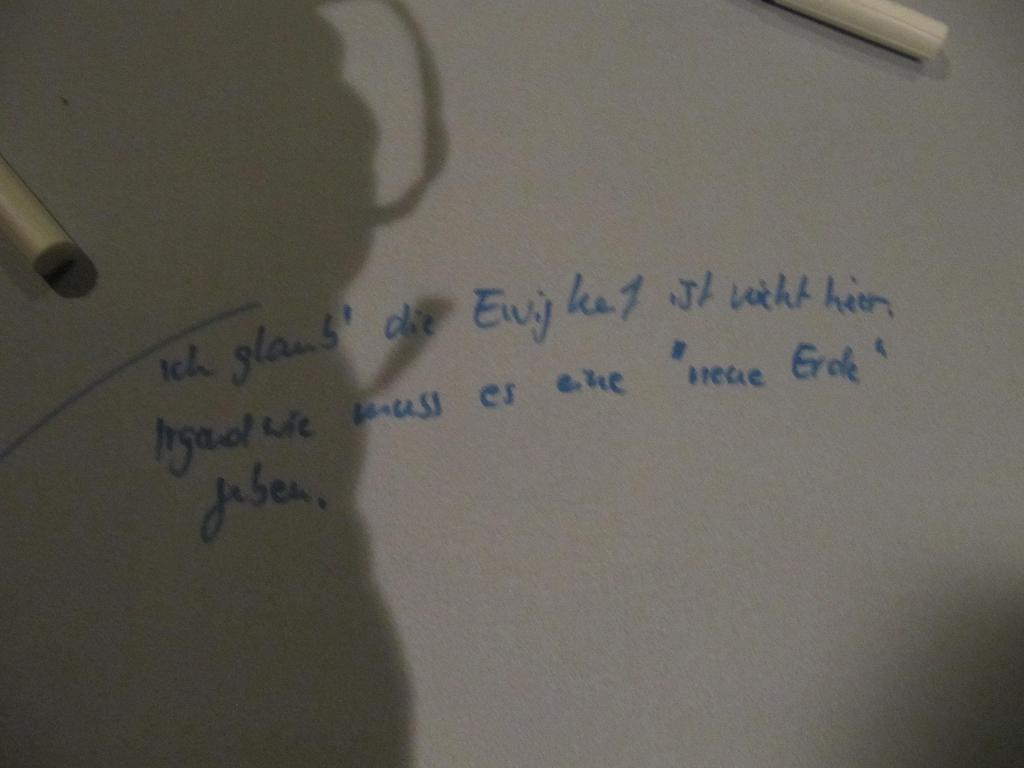 ich glaub' die Ewigkeit ist nicht hier.
Irgendwie muss es eine "neue Erde"
geben.